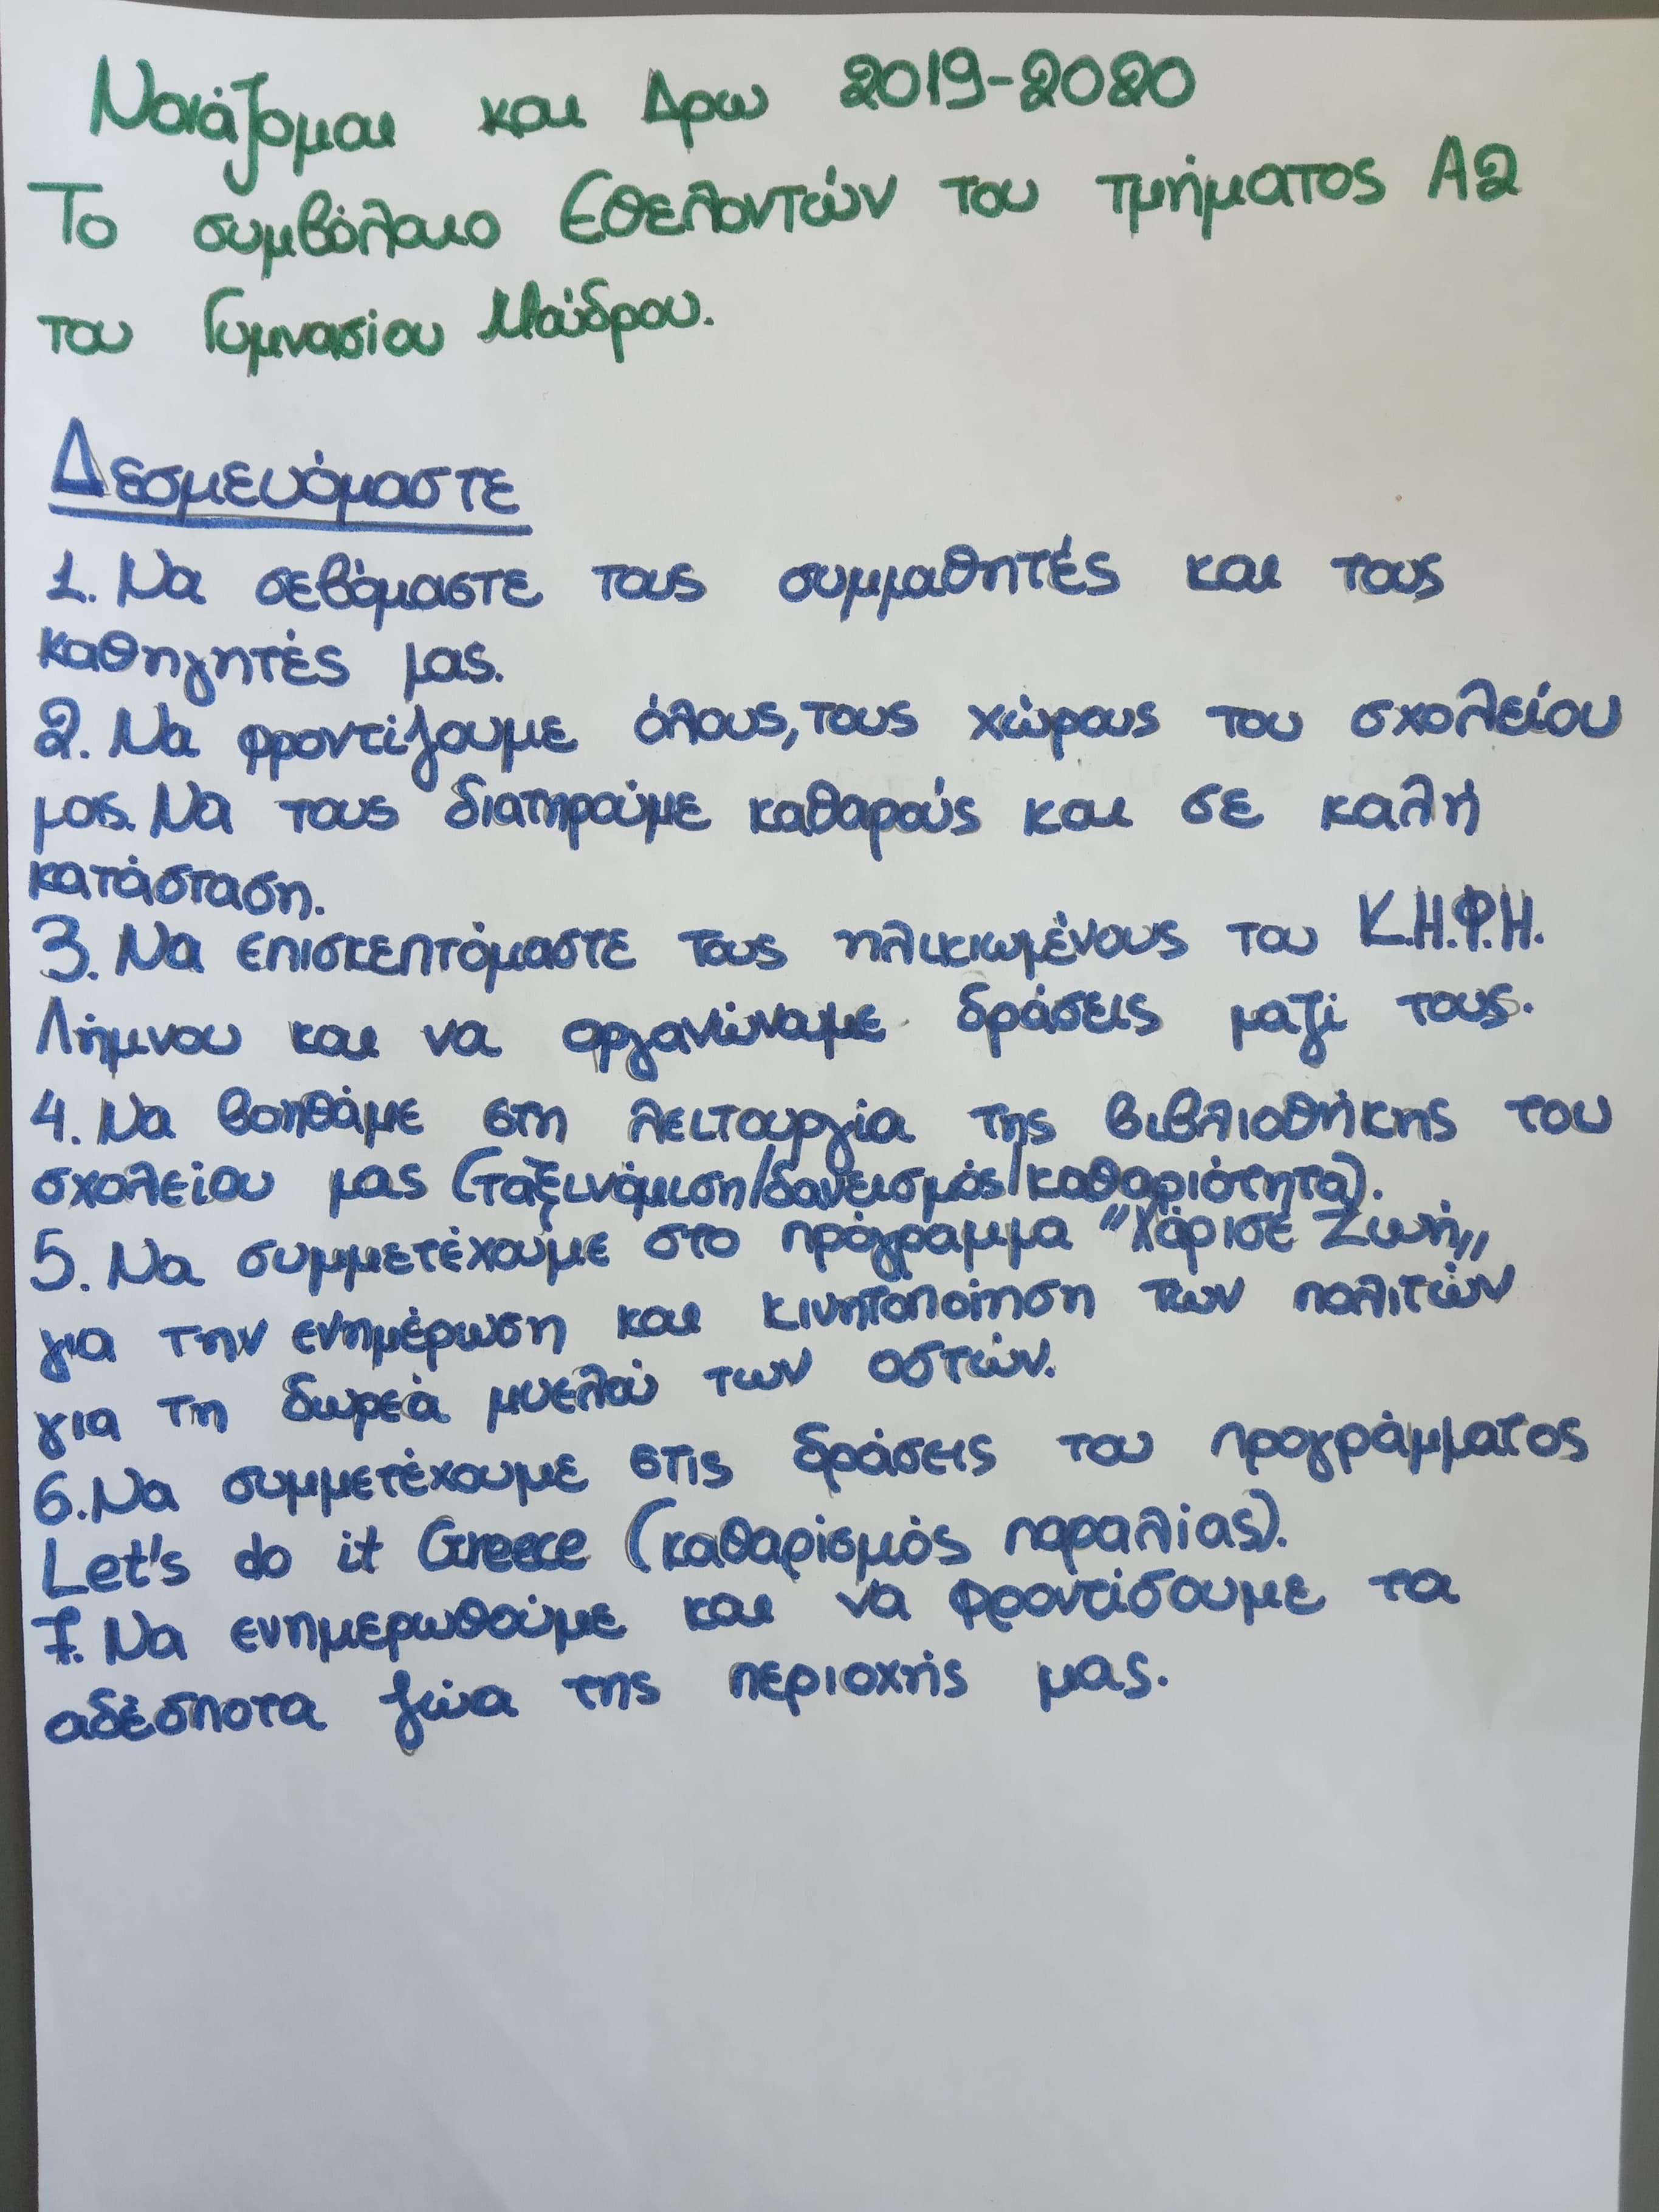 Νοιάζομαι και Δρω 2019-2020
Το συμβόλαιο Εθελοντών του τμήματος Α2
του Γυμνασίου Μούδρου.
Δεσμευόμαστε
1. Να σεβόμαστε τους συμμαθητές και τους
καθηγητές μας.
2. Να φροντίζουμε όλους, τους χώρους του σχολείου
μας. Να τους διατηρούμε καθαρούς και σε καλή
κατάσταση.
3. Να επισκεπτόμαστε τους ηλικιωμένους του Κ.Η.Φ.Η.
Λήμνου και να οργανώναμε δράσεις μαζί τους.
4. Να βοηθάμε στη λειτουργία της βιβλιοθήκης του
σχολείου μας (ταξινόμιση/δανεισμός/καθαριότητα).
5. Να συμμετέχουμε στο πρόγραμμα "Χάρισε Ζωή,,
για την ενημέρωση και κινητοποίηση των πολιτών
για τη δωρεά μυελού των οστών.
6. Να συμμετέχουμε στις δράσεις του προγράμματος
Let's do it Greece (καθαρισμός παραλίας).
7. Να ενημερωθούμε και να φροντίσουμε τα
αδέσποτα ζώα της περιοχής μας.